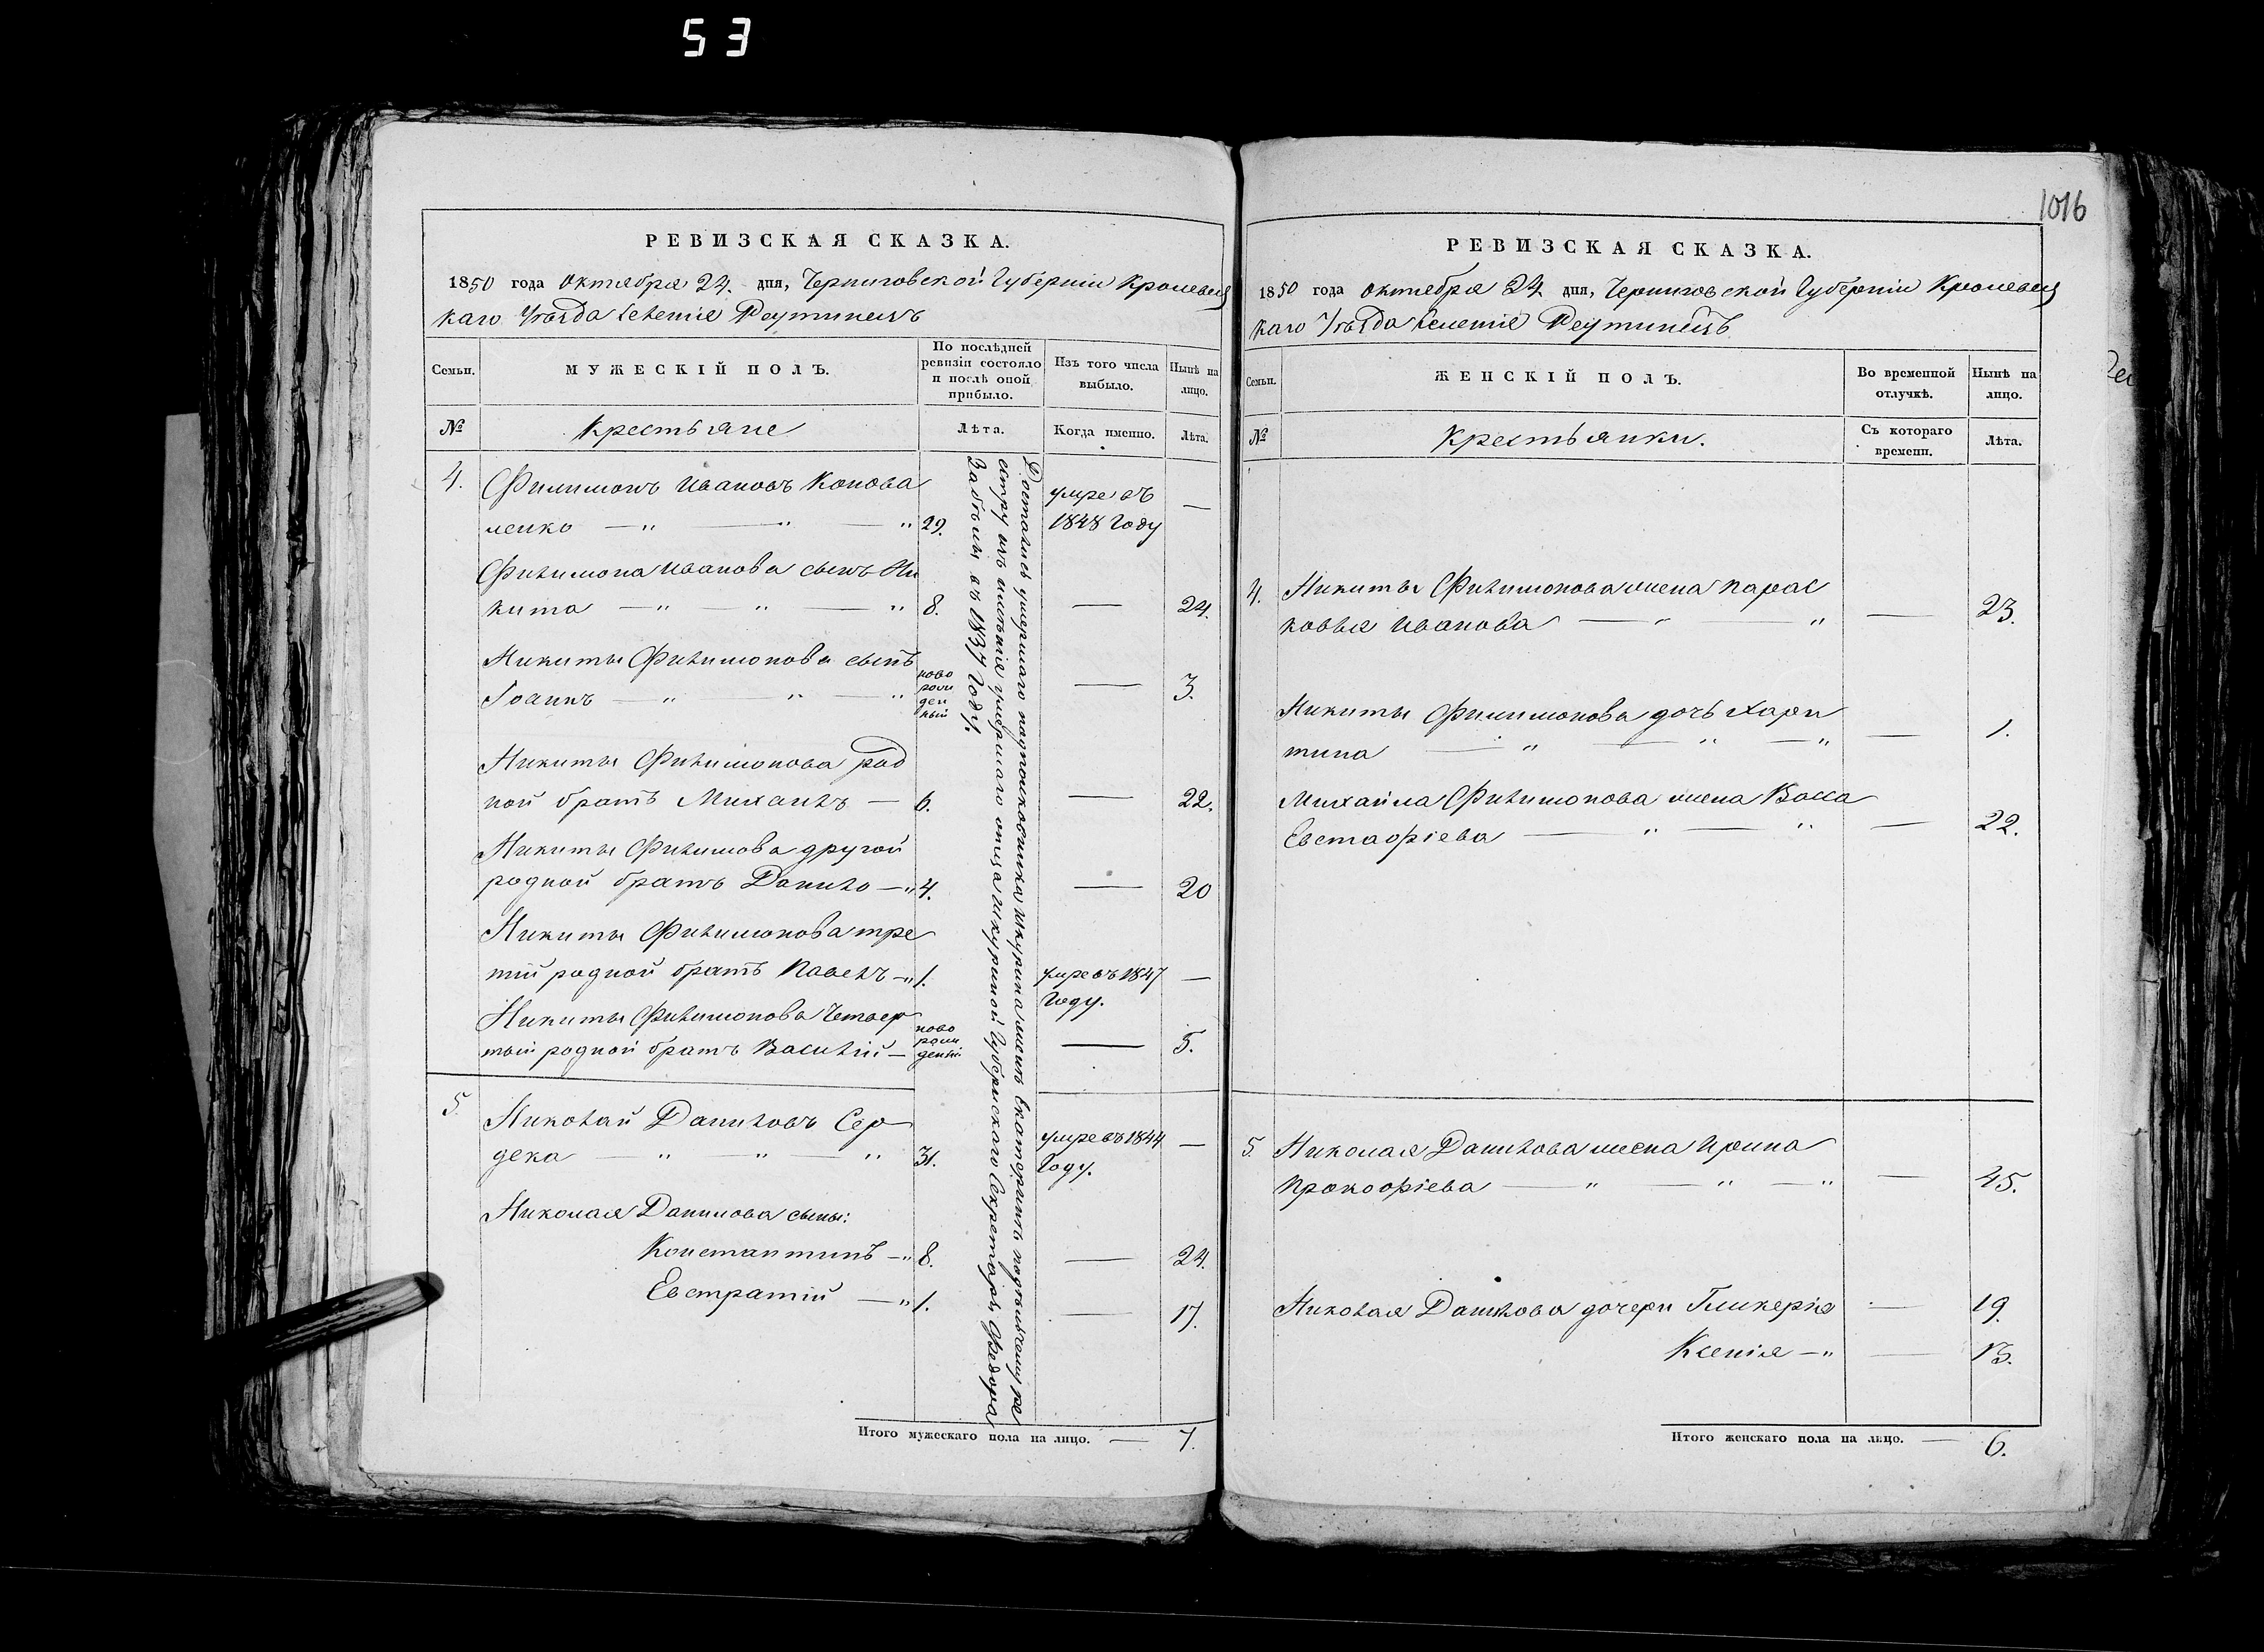 53
1016
РЕВИЗСКАЯ СКАЗКА.
1850 года Октября 24. дня, Черниговской Губернии Кролевец
каго Уѣзда Селенія Реутинецъ
Семьи.
МУЖЕСКІЙ ПОЛЪ.
По послѣдней
ревизіи состояло
и послѣ оной
прибыло.
Изъ того числа
выбыло.
Нынѣ на
лицо.
№
Крестьяне
Лѣта.
Когда именно.
Лѣта.
4.
Филимонъ Ивановъ Конова
ленко — " — " — " 29.
умре въ
1848 Году —
Филимона Иванова сынъ Ни
кита — " — " — " 8. — 24.
Никиты Филимонова сынъ
Іоаннъ — " " — "
ново
рож
ден
ный
— 3.
Никиты Филимонова род
ной братъ Михаилъ — 6. — 22.
Никиты Филимова другой
родной братъ Данило — " 4. — 20
Никиты Филимонова тре
тій родной братъ Павелъ — " 1.
умре въ 1847
Году. —
Никиты Филимонова Четвер
тый родной братъ Василій —
ново
рож
денный
— 5.
5.
Николай Даниловъ Сер
дека — " — " " 31.
умре въ 1844
Году. —
Николая Данилова сыны:
Константинъ — " 8. — 24.
Евстратій — " 1. — 17.
Достались умершаго подполковника Шкурина женѣ Екатеринѣ, подлѣжащу ре
естру изъ имѣнія умершаго отца Шкуриной Губернскаго Секретаря Федора
Забѣлы въ 1837 Году.
Итого мужескаго пола на лицо. — 7.
РЕВИЗСКАЯ СКАЗКА.
1850 года Октября 24 дня, Черниговской Губерніи Кролевец
каго Уѣзда Селенія Реутинецъ
Семьи.
ЖЕНСКІЙ ПОЛЪ.
Во временной
отлучкѣ.
Нынѣ на
лицо.
№
Крестьянки.
Съ котораго
времени.
Лѣта.
4. Никиты Филимонова жена Парас
ковья Иванова — " " — 23.
Никиты Филимонова дочь Хари
тина — " — " — " — 1.
Михайла Филимонова жена Васса
Евстафіева — " — " — 22.
5. Николая Данилова жена Ирина
Прокофіева — " — " — " — 45.
Николая Данилова дочери Гликерія — 19.
Ксенія — " — 13.
Итого женскаго пола на лицо. — 6.